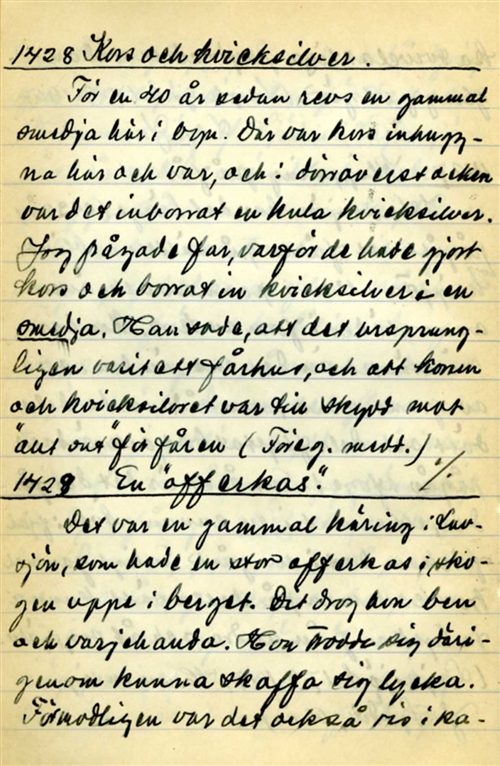 1428 Kors och kvicksilver.
För en 40 år sedan revs en gammal
smedja här i byn. Där var kors inhugg-
na här och var, och i dörröverstocken
var det inborrat en kula kvicksilver.
Jag frågade far, varför de hade gjort
kors och borrat in kvicksilver i en
smedja. Han sade, att det ursprung-
ligen varit ett fårhus, och att korsen
och kvicksilvret var till skydd mot
"allt ont" för fåren (Föreg. medd.) ./.
1429 En "offerkas".
Det var en gammal käring i Lav-
sjön, som hade en stor offerkas i sko-
gen uppe i berget. Dit drog hon ben
och varjehanda. Hon trodde sig däri-
genom kunna skaffa sig lycka.
Förmodligen var det också ris i ka-